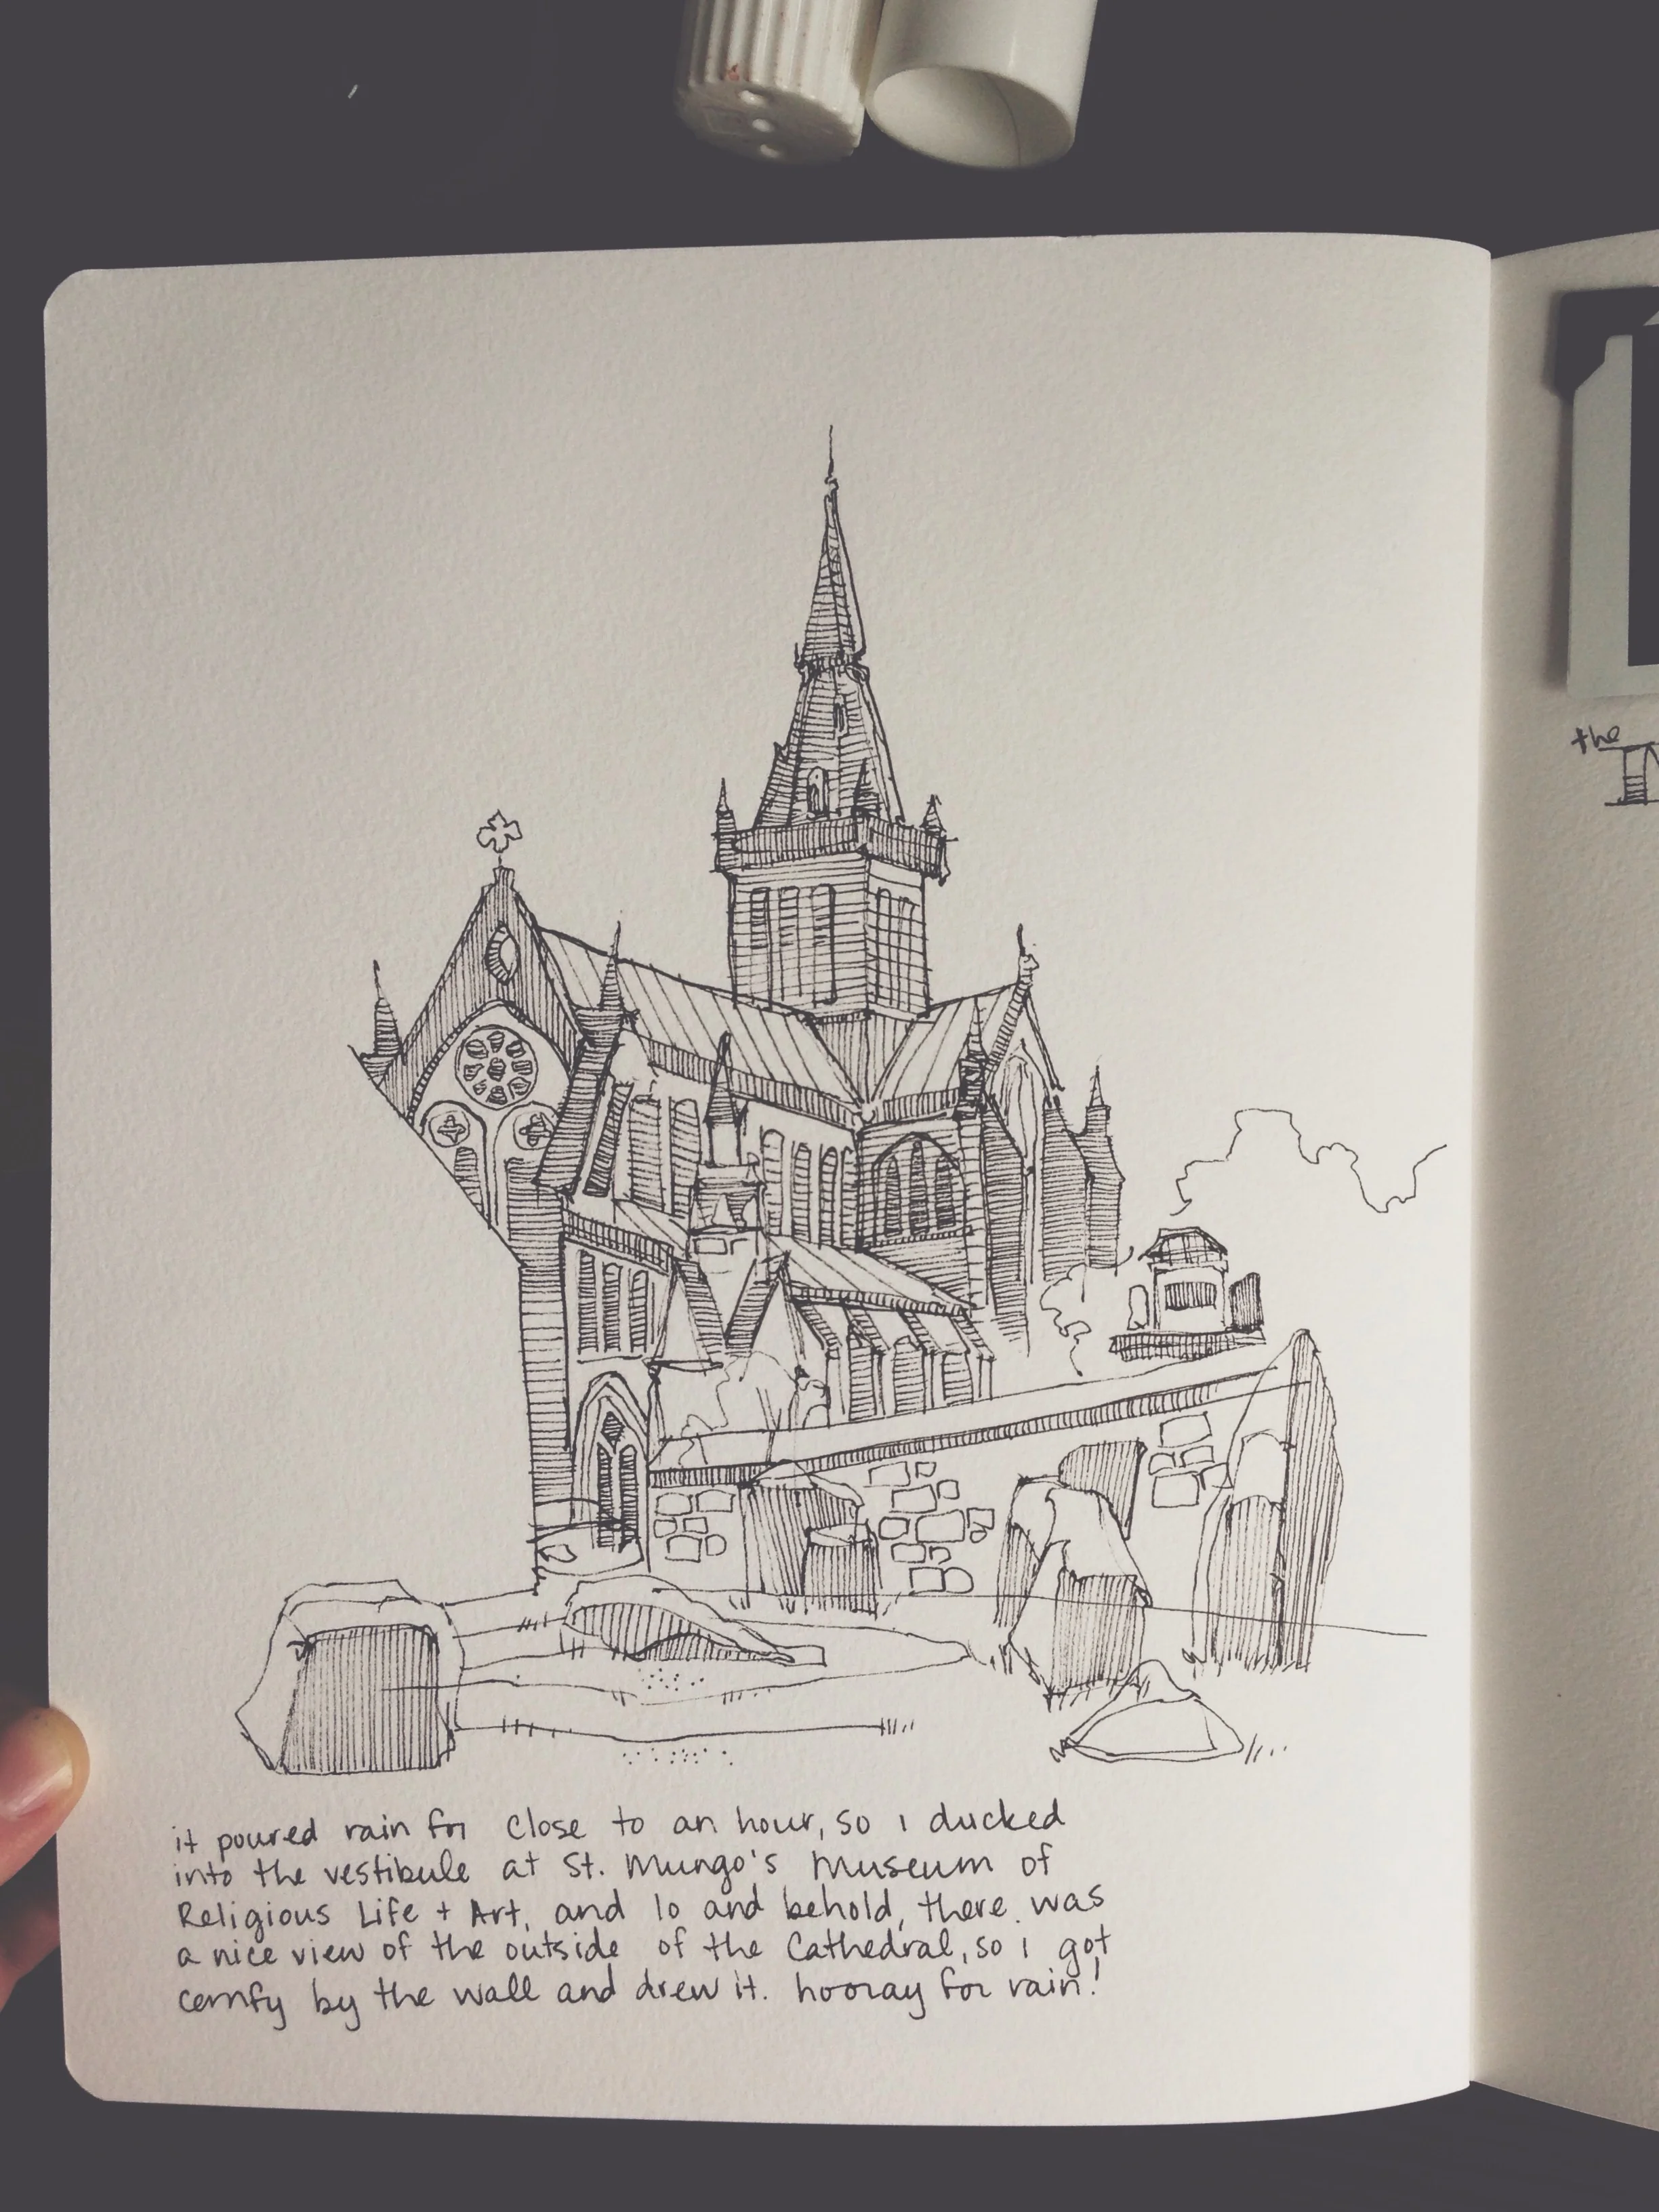 it poured rain for close to an hour, so i ducked
into the vestibule at St. Mungo's Museum of
Religious Life + Art, and lo and behold, there was
a nice view of the outside of the Cathedral, so i got
comfy by the wall and drew it. hooray for rain!
the